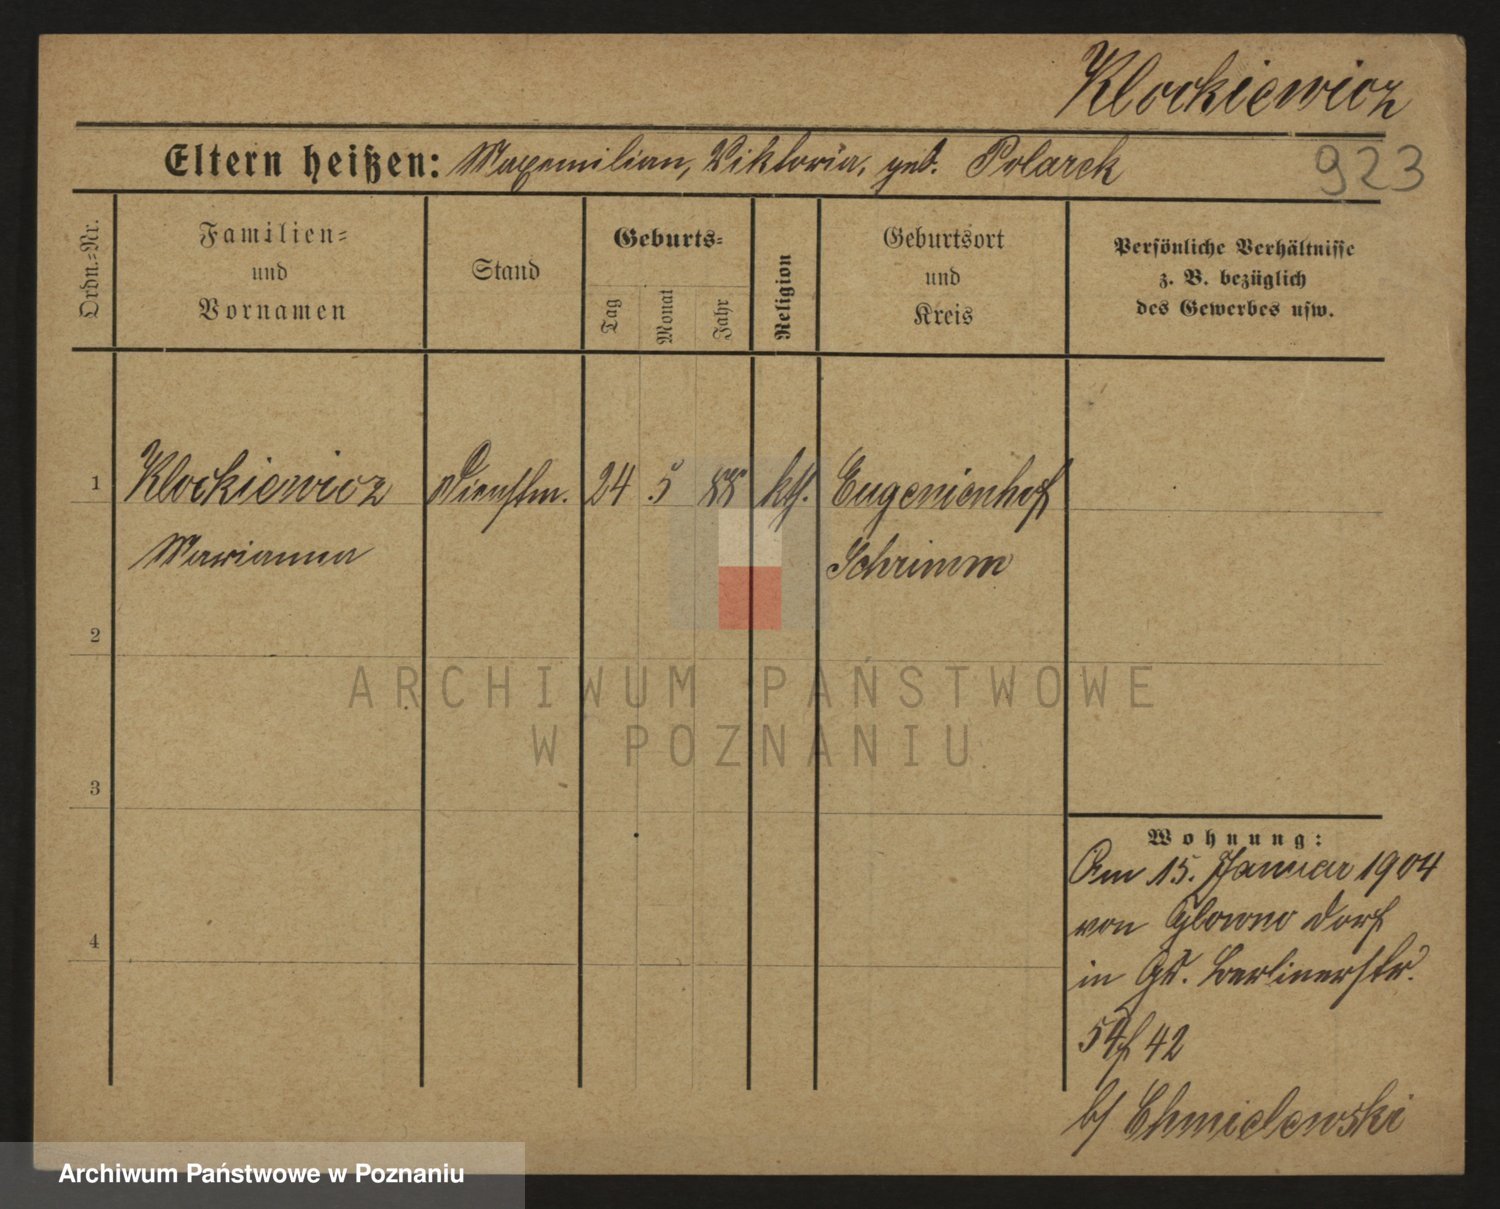 Klockiewicz
Eltern heißen: Maxemilian, Viktoria, geb. Polarek
923
Ordn.-Nr.
Familien-
und
Vornamen
Stand
Geburts-
Tag
Monat
Jahr
Religion
Geburtsort
und
Kreis
Persönliche Verhältnisse
z. B. bezüglich
des Gewerbes usw.
1 Klockiewicz Dienstm. 24 5 88 kth. Eugenienhof
Marianna Schrimm
2
ARCHIWUM PAŃSTWOWE
W POZNANIU
3
Wohnung:
Am 15. Januar 1904
von Glowno Dorf
4
in Berlinerstr.
42
b/ Chmielewski
Archiwum Państwowe w Poznaniu